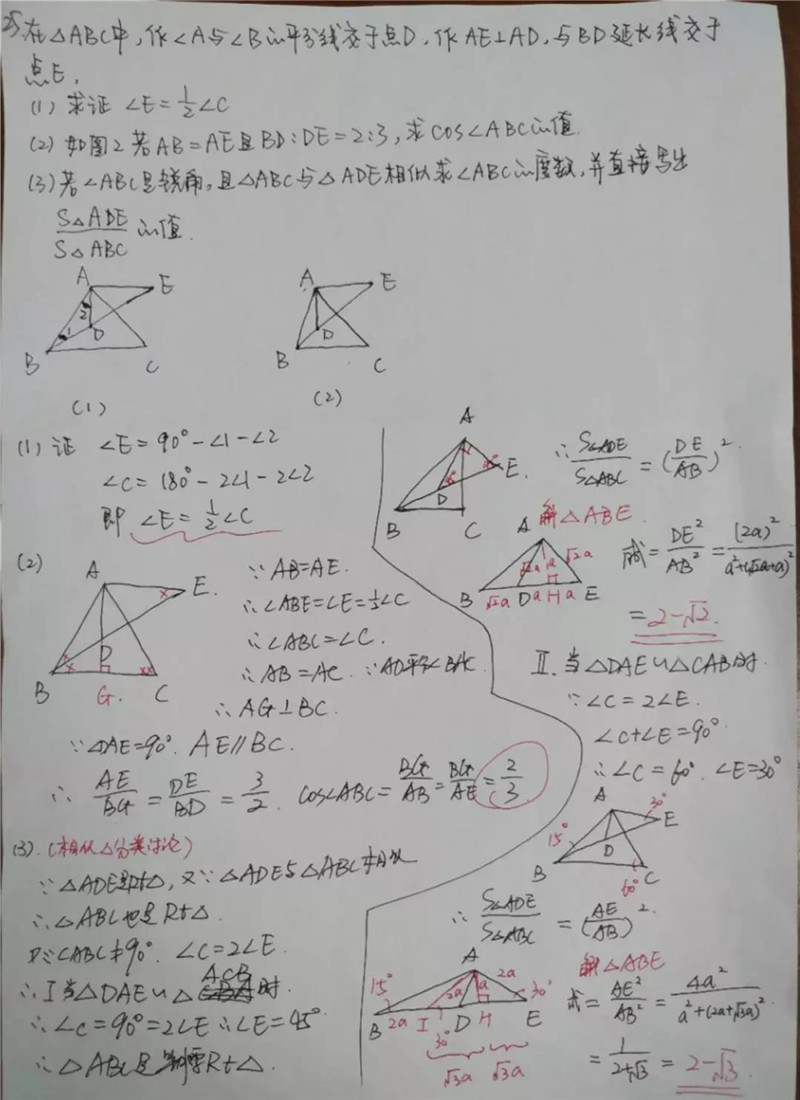 25 在△ABC中,作∠A与∠B的平分线交于点D,作AE⊥AD,与BD延长线交于
点E,
(1) 求证 ∠E=1/2∠C
(2) 如图2若AB=AE且BD:DE=2:3,求cos∠ABC的值
(3) 若∠ABC是锐角,且△ABC与△ADE相似求∠ABC的度数,并直接写出
S△ADE/S△ABC的值.
A E 2 1 D B C
(1)
A E D B C
(2)
(1) 证 ∠E=90°-∠1-∠2
∠C=180°-2∠1-2∠2
即 ∠E=1/2∠C
(2)
A E. × D × ×× B G. C
∵AB=AE.
∴∠ABE=∠E=1/2∠C
∴∠ABC=∠C.
∴AB=AC. ∵AD平分∠BAC
∴AG⊥BC.
∵∠DAE=90°. AE∥BC.
∴ AE/BG=DE/BD=3/2. cos∠ABC=BG/AB=BG/AE=2/3
(3).(相似△分类讨论)
∵△ADE是Rt△,又∵△ADE与△ABC相似
∴△ABC也是Rt△.
∵∠ABC≠90°. ∠C=2∠E.
∴Ⅰ当△DAE∽△ACB时.
∴∠C=90°=2∠E ∴∠E=45°
∴△ABC是等腰Rt△.
A E. D B C
∴S△ADE/S△ABC=(DE/AB)².
解△ABE.
A √2a a √2a B √2a D a H a E
式=DE²/AB²=(2a)²/a²+(√2a+a)²
=2-√2.
Ⅱ.当△DAE∽△CAB时.
∵∠C=2∠E.
∠C+∠E=90°.
∴∠C=60°. ∠E=30°
A 30° E 15° D B C 60°
∴S△ADE/S△ABC=(AE/AB)².
解△ABE
A 15° 2a 2a a 30° B 2a I D H E
30°
√3a √3a
式=AE²/AB²=4a²/a²+(2a+√3a)²
=1/2+√3=2-√3